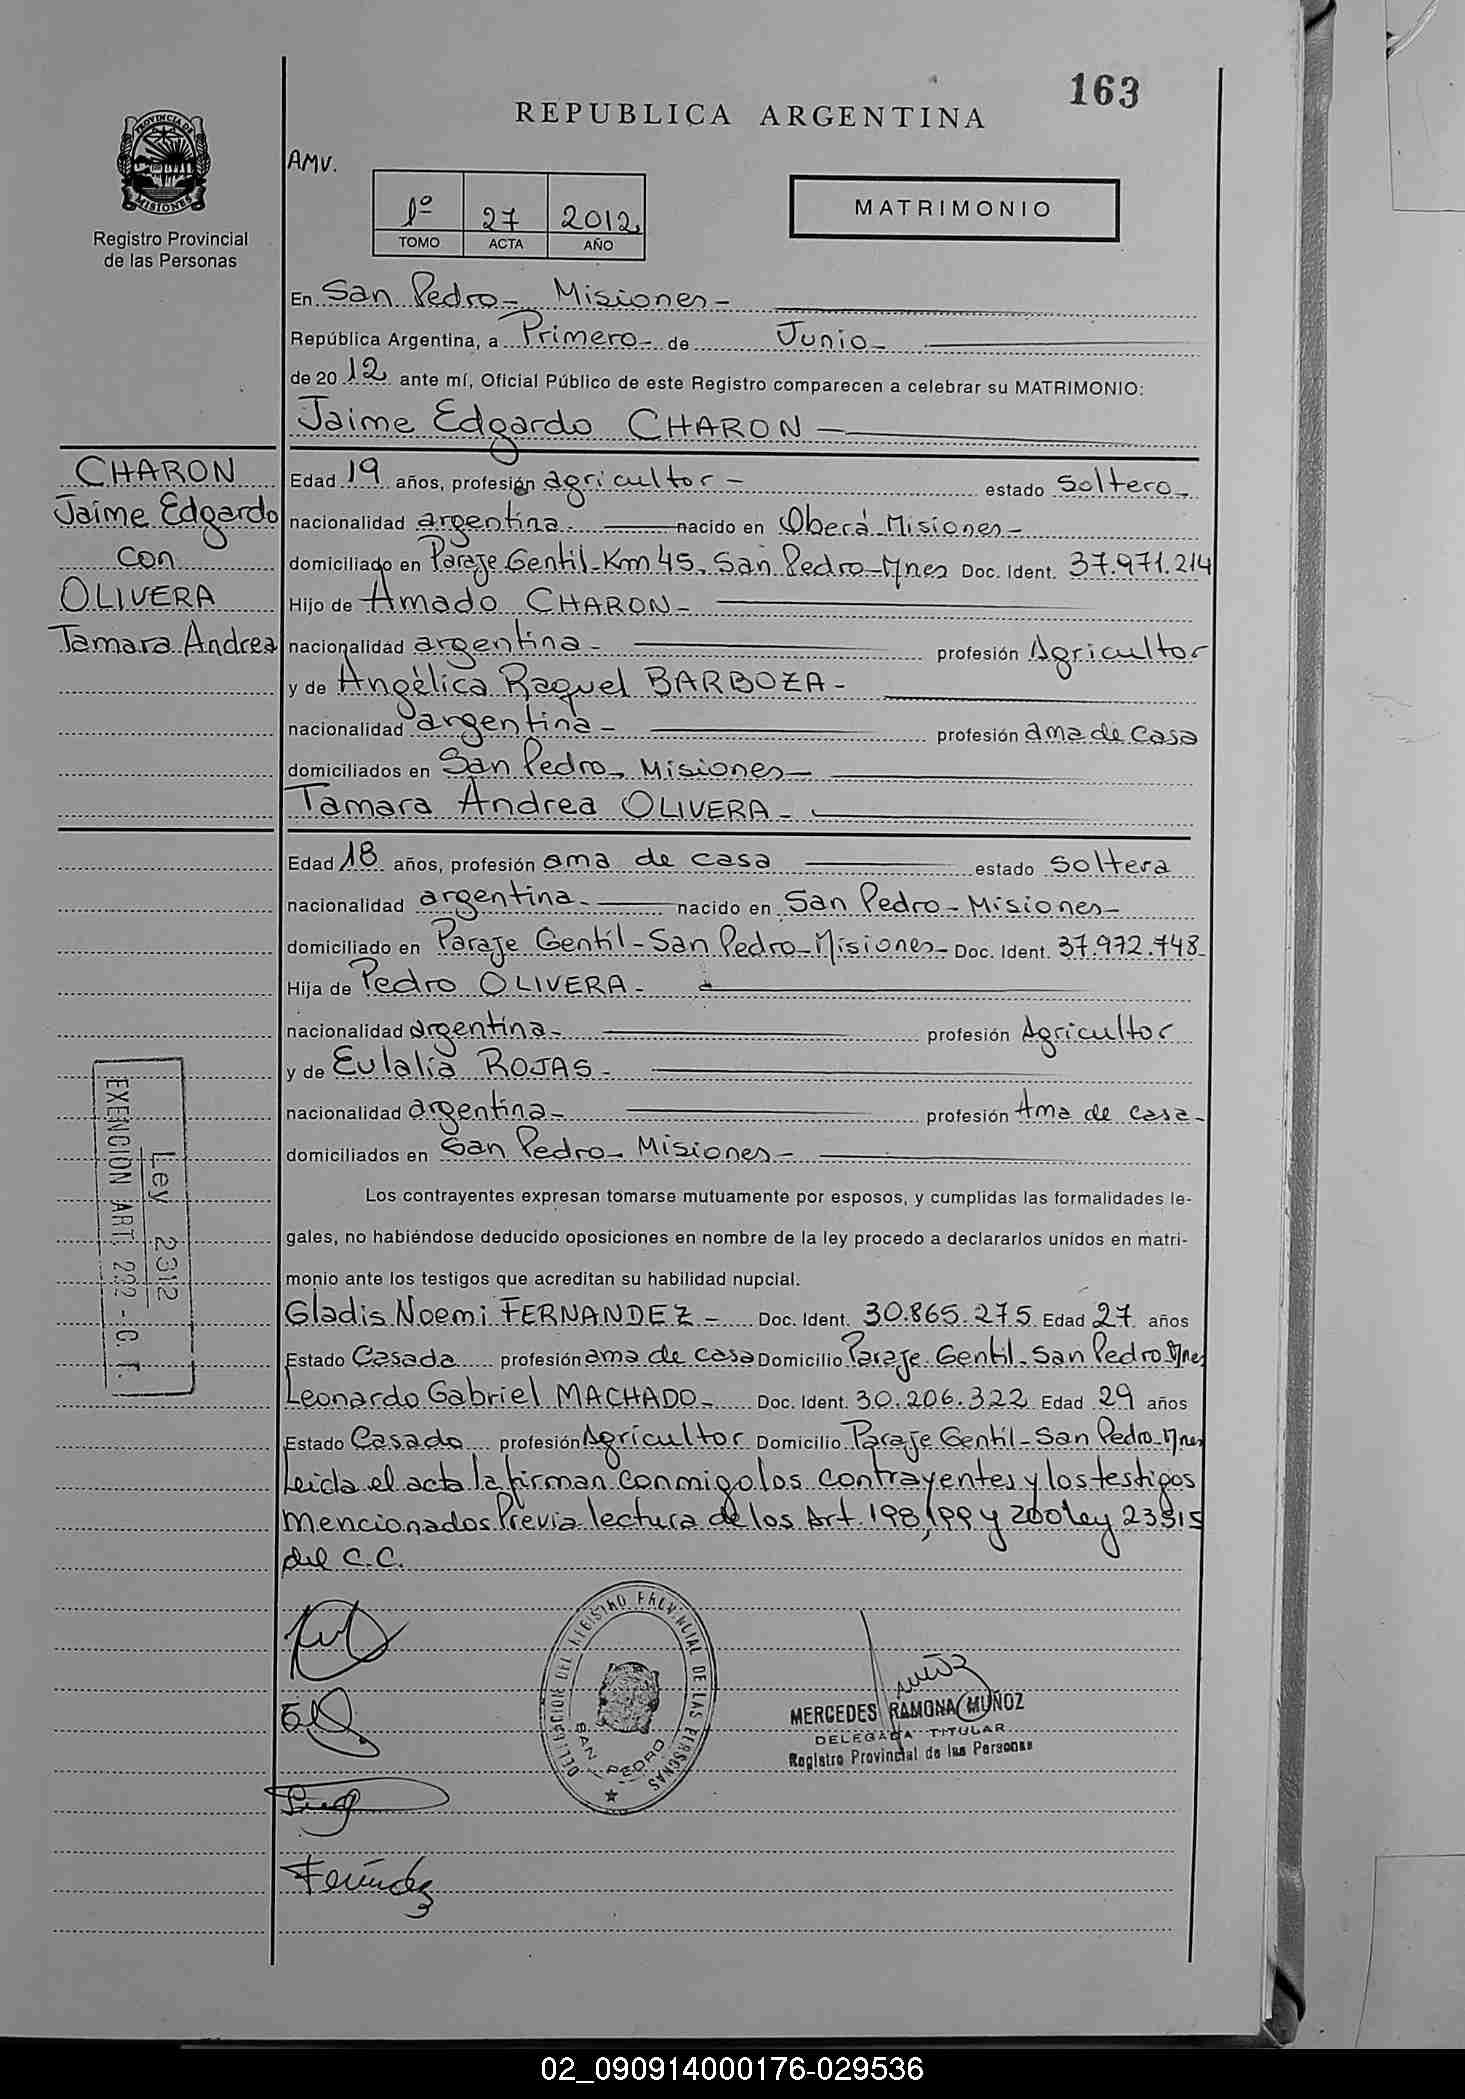 163
REPUBLICA ARGENTINA
PROVINCIA DE
MISIONES
Registro Provincial
de las Personas
AMV.
1º 27 2012
TOMO ACTA AÑO
MATRIMONIO
En San Pedro - Misiones -
República Argentina, a Primero - de Junio -
de 2012 ante mí, Oficial Público de este Registro comparecen a celebrar su MATRIMONIO:
Jaime Edgardo CHARON -
CHARON
Jaime Edgardo
con
OLIVERA
Tamara Andrea
Edad 19 años, profesión agricultor - estado soltero -
nacionalidad argentina - nacido en Oberá - Misiones -
domiciliado en Paraje Gentil - Km 45. San Pedro - Mnes Doc. Ident. 37.971.214
Hijo de Amado CHARON -
nacionalidad argentina - profesión Agricultor
y de Angélica Raquel BARBOZA -
nacionalidad argentina - profesión ama de casa
domiciliados en San Pedro - Misiones -
Tamara Andrea OLIVERA -
Edad 18 años, profesión ama de casa estado soltera
nacionalidad argentina - nacido en San Pedro - Misiones -
domiciliado en Paraje Gentil - San Pedro - Misiones - Doc. Ident. 37.972.748
Hija de Pedro OLIVERA -
nacionalidad argentina - profesión Agricultor
y de Eulalia ROJAS -
nacionalidad argentina - profesión Ama de casa -
domiciliados en San Pedro - Misiones -
Ley 2312
EXENCION ART. 232 - C. F.
Los contrayentes expresan tomarse mutuamente por esposos, y cumplidas las formalidades le-
gales, no habiéndose deducido oposiciones en nombre de la ley procedo a declararlos unidos en matri-
monio ante los testigos que acreditan su habilidad nupcial.
Gladis Noemi FERNANDEZ - Doc. Ident. 30.865.275 Edad 27 años
Estado Casada profesión ama de casa Domicilio Paraje Gentil - San Pedro Mnes
Leonardo Gabriel MACHADO - Doc. Ident. 30.206.322 Edad 29 años
Estado Casado profesión Agricultor Domicilio Paraje Gentil - San Pedro - Mnes
Leida el acta la firman conmigo los contrayentes y los testigos
mencionados Previa lectura de los Art. 198, 199 y 200 ley 23515
del C.C.
DELEGACION DEL REGISTRO PROVINCIAL DE LAS PERSONAS
SAN PEDRO
MERCEDES RAMONA MUÑOZ
DELEGADA TITULAR
Registro Provincial de las Personas
02_090914000176-029536